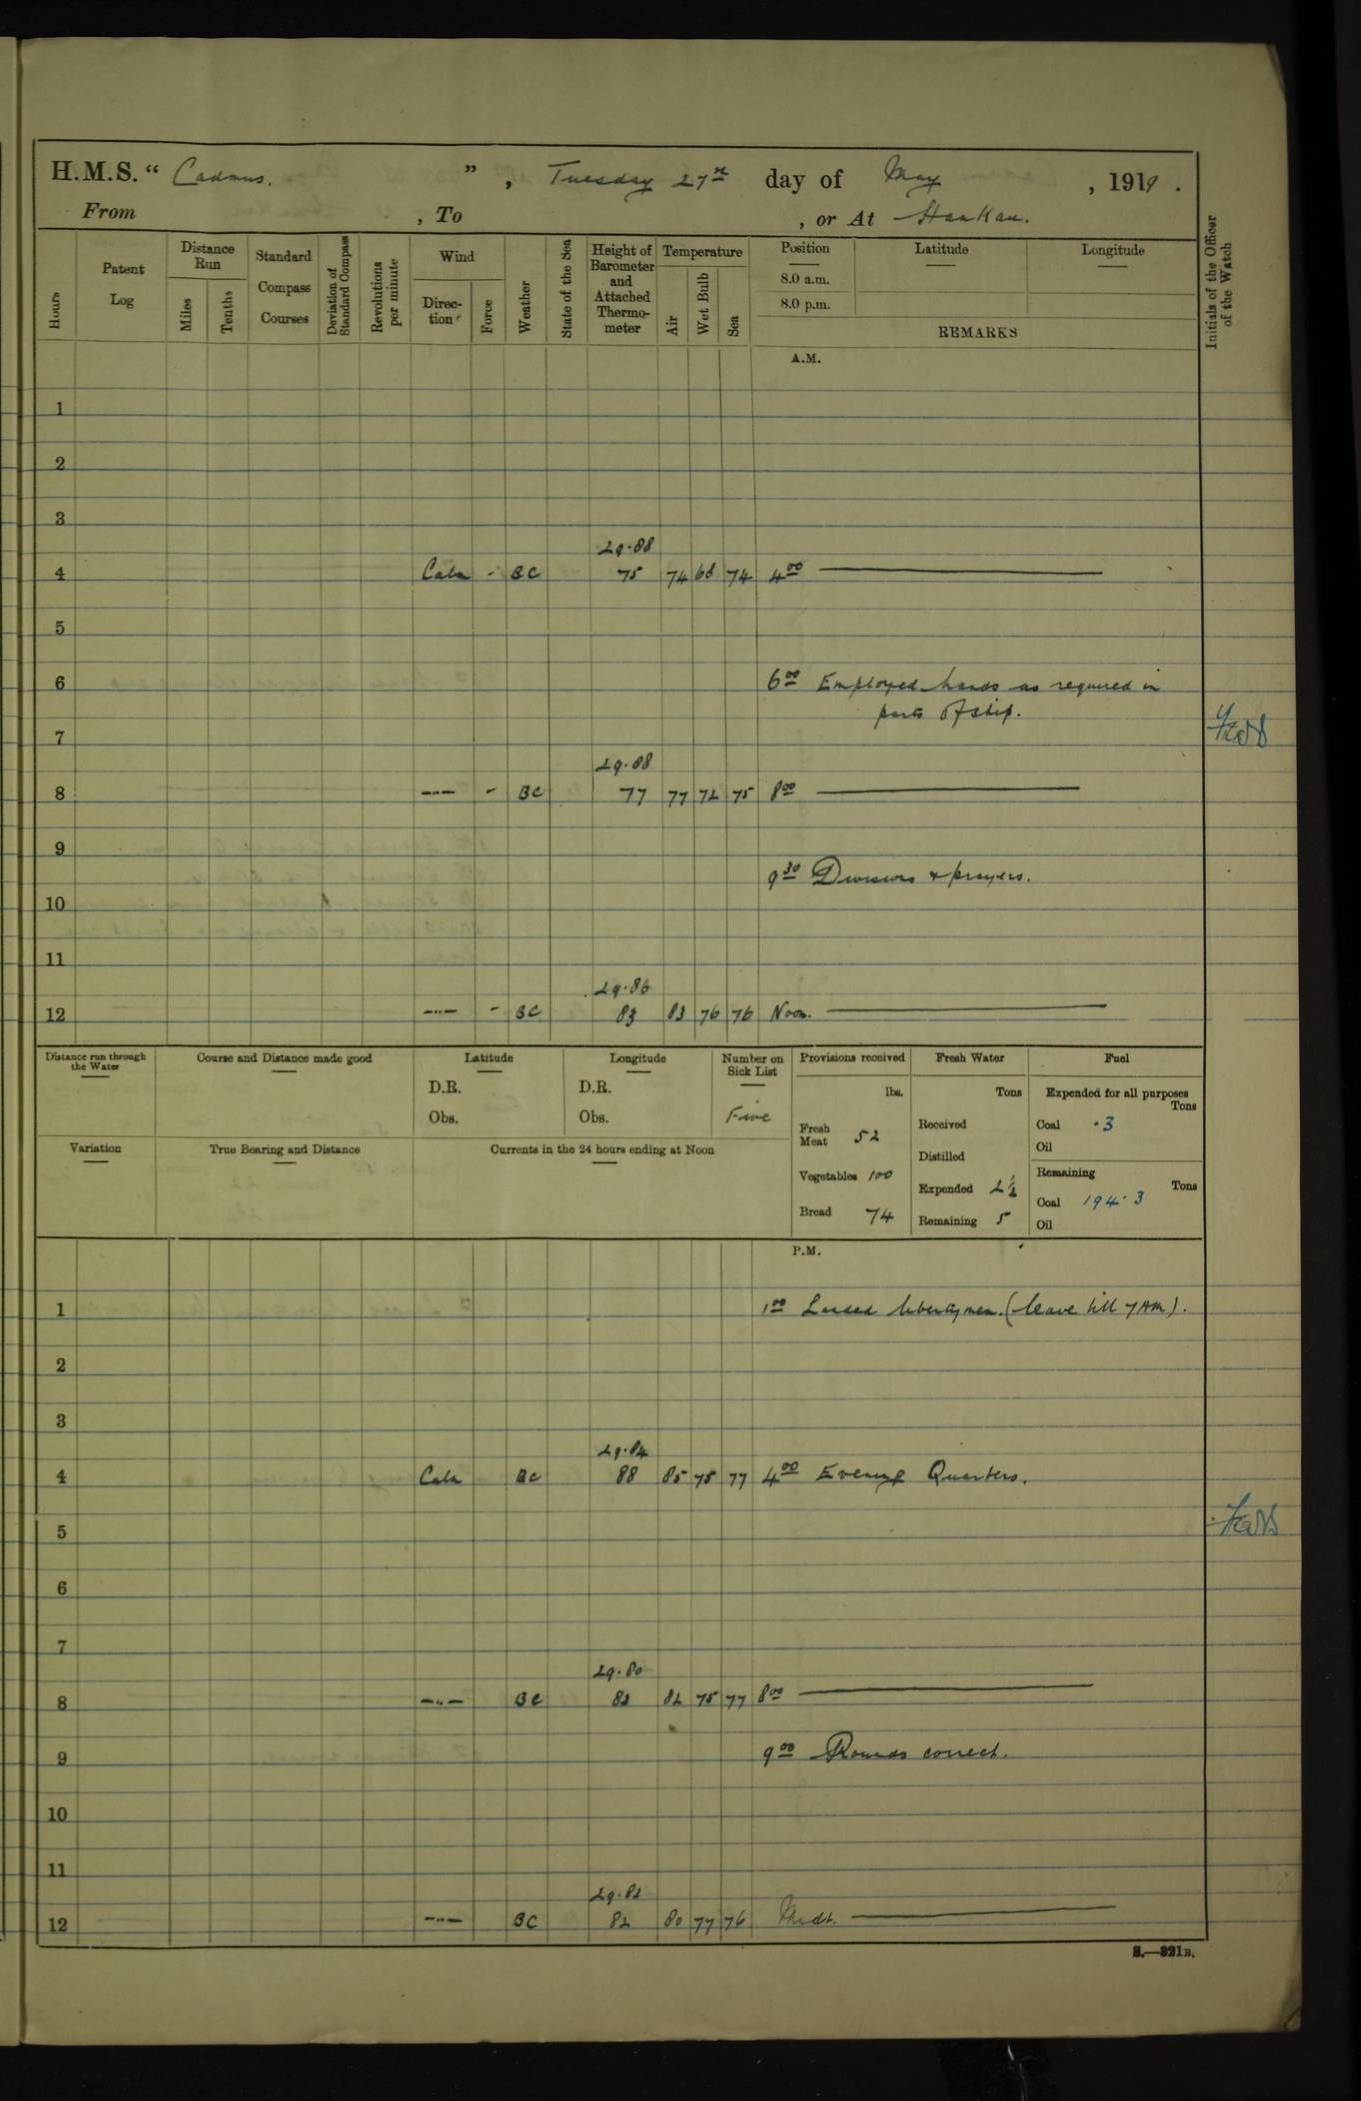 H.M.S. “ Cadmus. ” , Tuesday 27th day of May , 1919 .
From , To , or At Hankau.
Hours
Patent Log
Distance Run
Miles
Tenths
Standard Compass Courses
Deviation of Standard Compass
Revolutions per minute
Wind
Direc- tion
Force
Weather
State of the Sea
Height of Barometer and Attached Thermo- meter
Temperature
Air
Wet Bulb
Sea
Position Latitude Longitude
8.0 a.m.
8.0 p.m.
REMARKS
Initials of the Officer of the Watch
A.M.
1
2
3
29.88
4 Calm - BC 75 74 68 74 4 00
5
6 6 00 Employed hands as required in
parts of ship.
7
29.88
8 -..- - BC 77 77 72 75 8 00
9
9 30 Divisions & prayers.
10
11
29.86
12 -..- - BC 83 83 76 76 Noon.
Distance run through the Water
Course and Distance made good
Latitude
D.R.
Obs.
Longitude
D.R.
Obs.
Number on Sick List
Five
Variation
True Bearing and Distance
Currents in the 24 hours ending at Noon
Provisions received
lbs.
Fresh Meat 52
Vegetables 100
Bread 74
Fresh Water
Tons
Received
Distilled
Expended 2½
Remaining 5
Fuel
Expended for all purposes
Tons
Coal .3
Oil
Remaining
Tons
Coal 194.3
Oil
P.M.
1 1 00 Landed libertymen. (leave till 7 AM).
2
3
29.84
4 Calm BC 88 85 75 77 4 00 Evening Quarters.
5
6
7
29.80
8 -..- BC 82 75 77 8 00
9 9 00 Rounds correct.
10
11
29.82
12 -..- BC 82 80 77 76 Midt.
S.—321B.